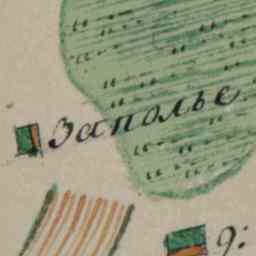 Заполье
9: